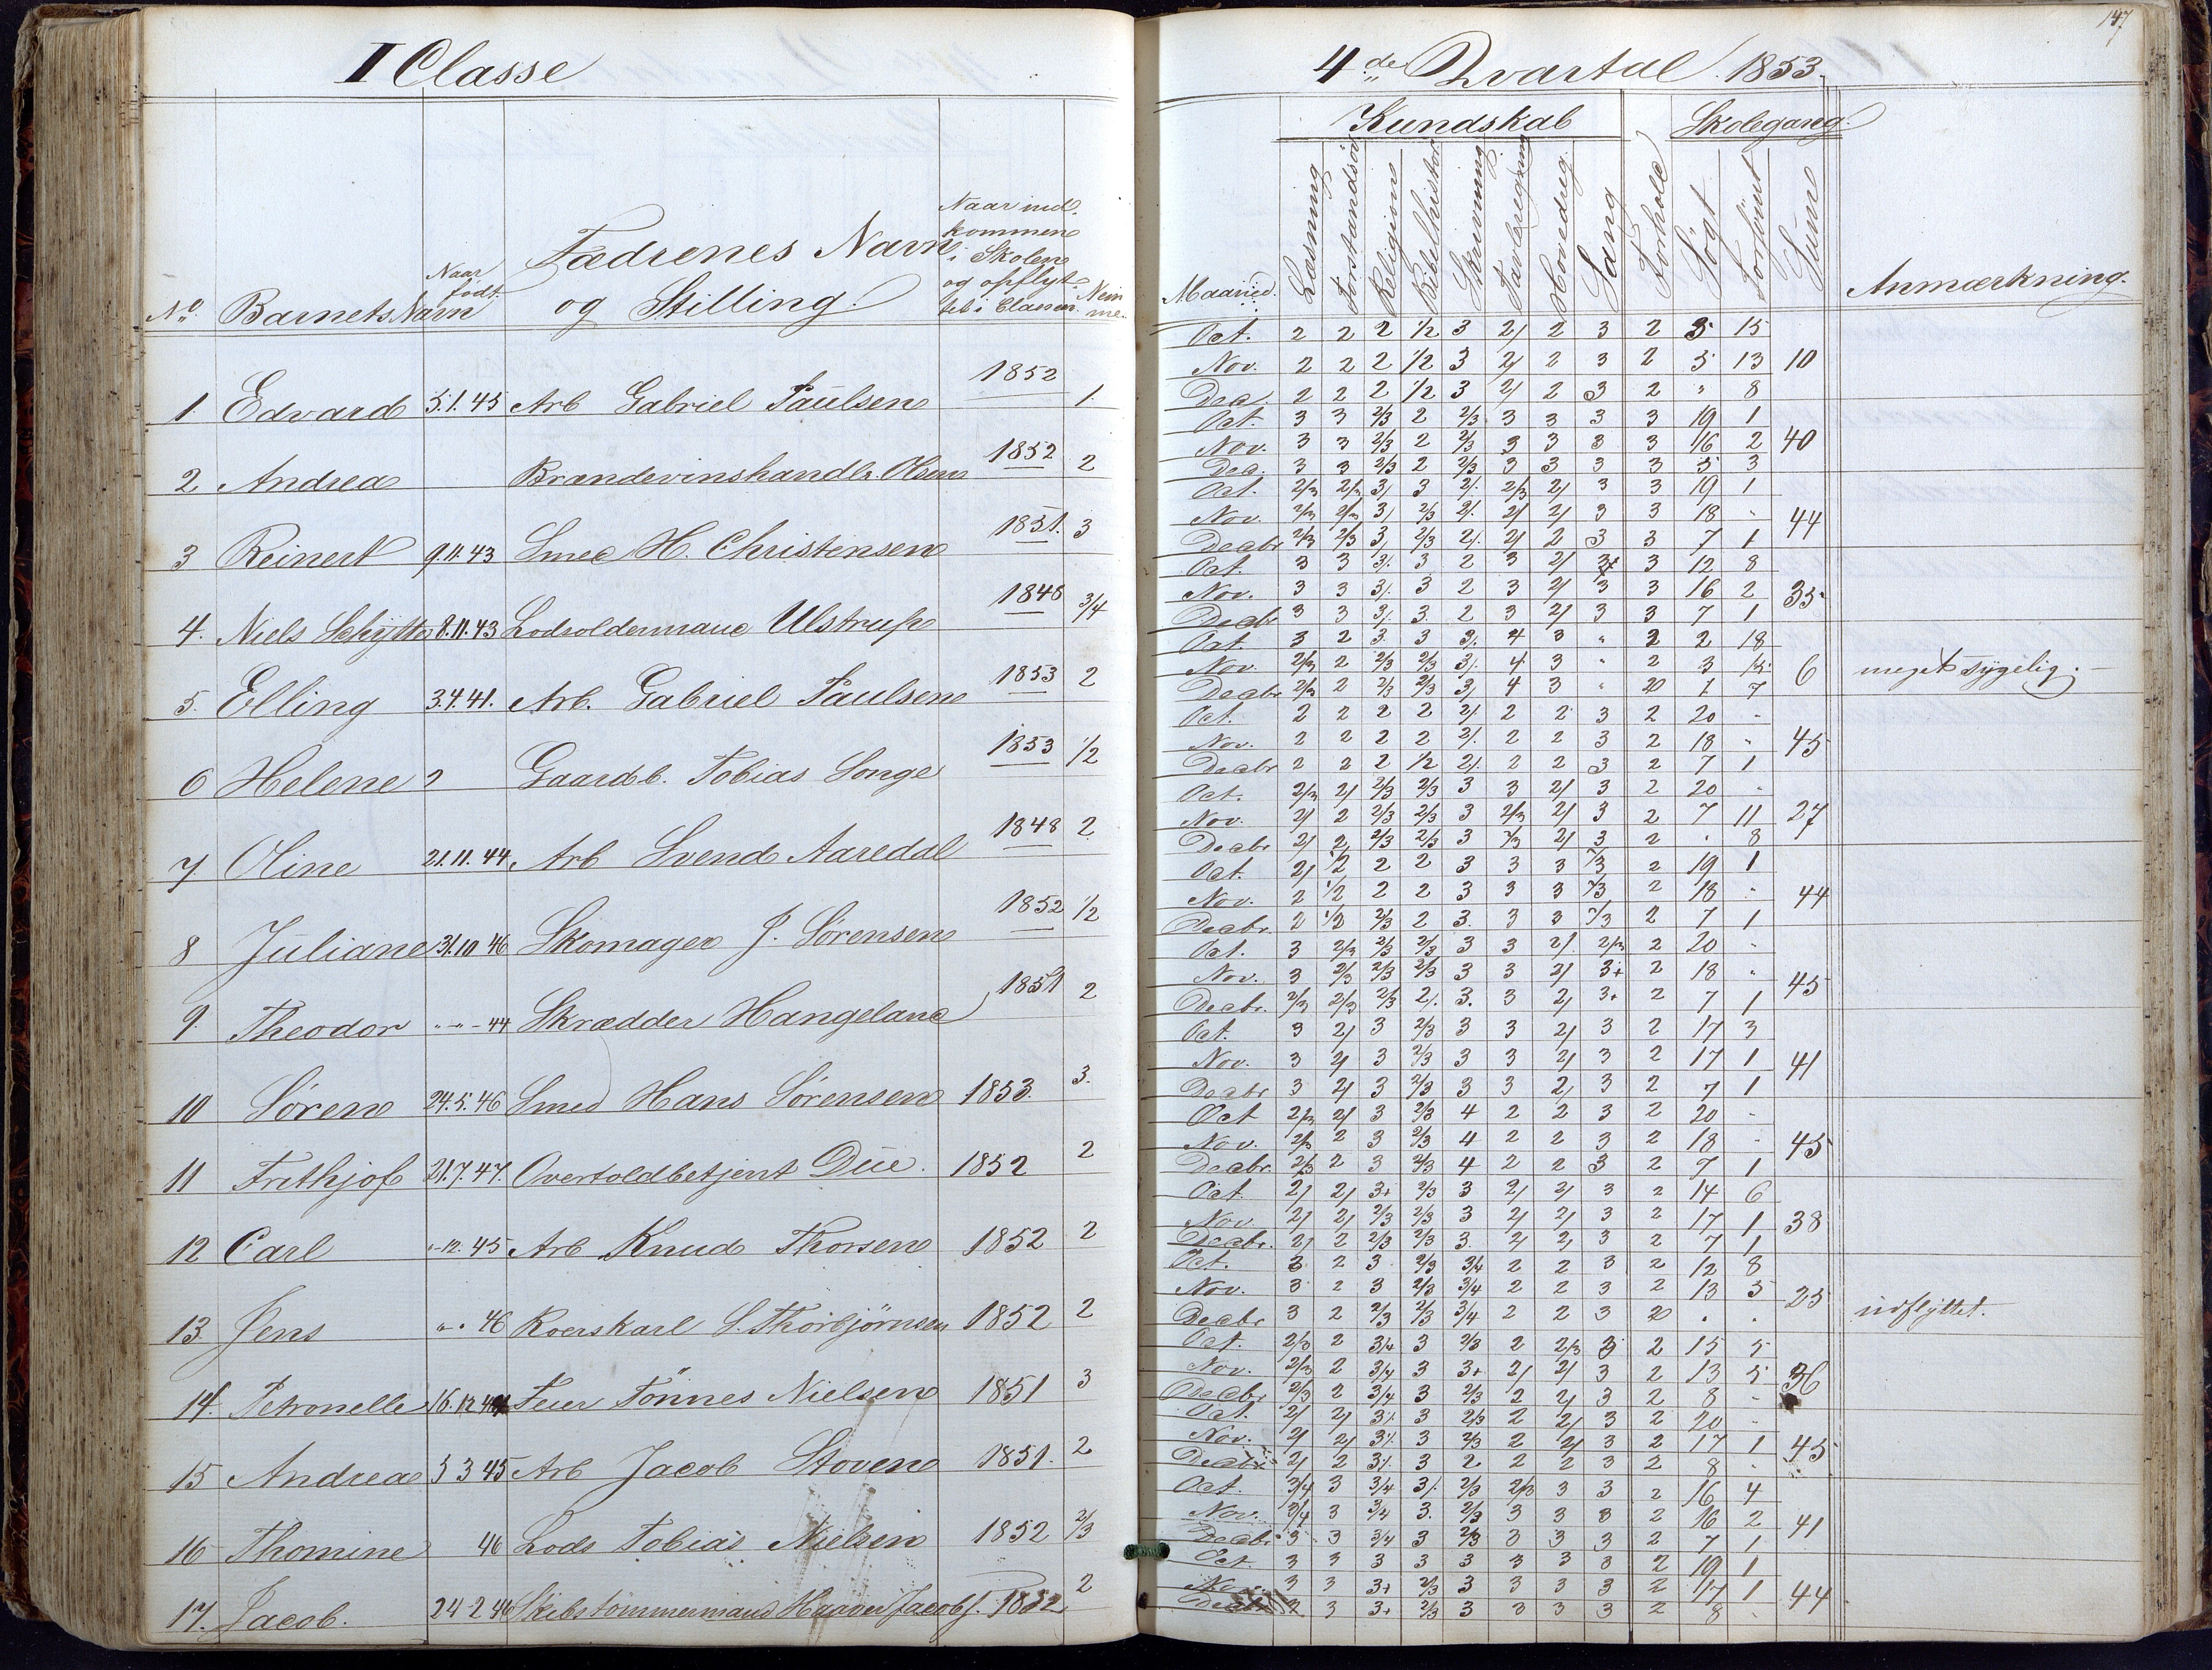 I Classe
No. Barnets Navn Naar født. Fædrenes Navn og Stilling. Naar ind-kommen i Skolen og opflyt-tet i Classen.
1. Edvard 5.1.45 Arb Gabriel Paulsen 1852 1.
2 Andrea Brændevinshandlr. Olsen 1852 2
3 Reinert 9.11.43 Smed H. Christensen 1851. 3
4. Niels Schytte 8.11.43 Lodsoldermand Ulstrup 1848 3/4
5. Elling 3.4.41. Arb. Gabriel Paulsen 1853 2
6 Helene Gaardb. Tobias Songe 1853 1/2
7 Oline 21.11.44 Arb Svend Aaredal 1848 2
8 Juliane 31.10 46 Skomager J. Sørensen 1852 1/2
9. Theodor " - " - 44 Skrædder Hangeland 1851 2
10 Søren 24.5.46 Smed Hans Sørensen 1853. 3.
11 Frithjof 21.7.47. Overtoldbetjent Düe. 1852 2
12 Carl " - 12. 45 Arb Knud Thorsen 1852 2
13. Jens " . 46 Roerskarl S. Thorbjörnsen 1852 2
14. Petronelle 16.12 Feier Tönnes Nielsen 1851 3
15 Andreas 5 3 45 Arb Jacob Stoven 1851. 2
16 Thomine 46 Lods Tobias Nielsen 1852 2/3
17. Jacob. 24-2 46 Skibstömmermand Jacobs. 1852 2
147
4de Qvartal 1853.
Kundskab Skolegang.
Maaned. Læsning Forstandsøv Religion Bibelhistor Skrivning Tavleregning Hovedreg. Sang Forhold Søgt Forsömt Sum Anmærkning.
Oct. 2 2 2 1/2 3 2/ 2 3 2 5 15
Nov. 2 2 2 1/2 3 2/ 2 3 2 5 13 10
Dec. 2 2 2 1/2 3 2/ 2 3 2 " 8
Oct. 3 3 2/3 2 2/3 3 3 3 3 19 1
Nov. 3 3 2/3 2 2/3 3 3 3 3 16 2 40
Dec. 3 3 2/3 2 2/3 3 3 3 3 5 3
Oct. 2/3 2/3 3/ 3 2/. 2/3 2/ 3 3 19 1
Nov. 2/3 2/3 3/ 2/3 2/. 2/ 2/ 3 3 18 - 44
Decbr 2/3 2/3 3/ 2/3 2/. 2/ 2 3 3 7 1
Oct. 3 3 3/. 3 2 3 2/ 3+ 3 12 8
Nov. 3 3 3/. 3 2 3 2/ 3 3 16 2 35
Decbr 3 3 3/. 3. 2 3 2/ 3 3 7 1
Oct. 3 2 3. 3 3/. 4 3 " 2 2 18
Nov. 2/3 2 2/3 2/3 3/. 4 3 " 2 3 15 6 meget sygelig. -
Decbr 2/3 2 2/3 2/3 3/ 4 3 " 2 1 7
Oct. 2 2 2 2 2/. 2 2 3 2 20 -
Nov. 2 2 2 2 2/. 2 2 3 2 18 " 45
Decbr 2 2 2 1/2 2/. 2 2 3 2 7 1
Oct. 2/3 2/ 2/3 2/3 3 3 2/ 3 2 20 "
Nov. 2/ 2 2/3 2/3 3 2/3 2/ 3 2 7 11 27
Decbr 2/ 2 2/3 2/3 3 2/3 2/ 3 2 " 8
Oct. 2/ 1/2 2 2 3 3 3 2/3 2 19 1
Nov. 2 1/2 2 2 3 3 3 2/3 2 18 - 44
Decbr. 2 1/2 2/3 2 3. 3 3 2/3 2 7 1
Oct. 3 2/3 2/3 2/3 3 3 2/ 2/3 2 20 -
Nov. 3 2/3 2/3 2/3 3 3 2/ 3+ 2 18 " 45
Decbr. 2/3 2/3 2/3 2/. 3. 3 2/ 3+ 2 7 1
Oct. 3 2/ 3 2/3 3 3 2/ 3 2 17 3
Nov. 3 2/ 3 2/3 3 3 2/ 3 2 17 1 41
Decbr 3 2/ 3 2/3 3 3 2/ 3 2 7 1
Oct 2/3 2/ 3 2/3 4 2 2 3 2 20 -
Nov. 2/3 2 3 2/3 4 2 2 3 2 18 - 45
Decbr. 2/3 2 3 2/3 4 2 2 3 2 7 1
Oct. 2/ 2/ 3+ 2/3 3 2/ 2/ 3 2 14 6
Nov. 2/ 2/ 2/3 2/3 3 2/ 2/ 3 2 17 1 38
Decbr. 2/ 2 2/3 2/3 3. 2/ 2/ 3 2 7 1
Oct. 3 2 3 2/3 3/4 2 2 3 2 12 8
Nov. 3 2 3 2/3 3/4 2 2 3 2 13 5 25
Decbr 3 2 2/3 2/3 3/4 2 2 3 2 . . udflyttet.
Oct. 2/3 2 3/4 3 2/3 2 2/3 3 2 15 5
Nov. 2/3 2 3/4 3 3+ 2/ 2/ 3 2 13 5 36
Decbr 2/3 2 3/4 3 2/3 2 2/ 3 2 8 -
Oct. 2/ 2/ 3/. 3 2/3 2 2/ 3 2 20 -
Nov. 2/ 2/ 3/. 3 2/3 2 2/ 3 2 17 1 45
Decbr 2/ 2 3/. 3 2 2 2 3 2 8 -
Oct. 3/4 3 3/4 3/. 2/3 2/3 3 3 2 16 4
Nov. 3/4 3 3/4 3. 2/3 3 3 3 2 16 2 41
Decbr 3 3 3/4 3 2/3 3 3 3 2 7 1
Oct. 3 3 3 3 3 3 3 3 2 19 1
Nov. 3 3 3+ 2/3 3 3 3 3 2 17 1 44
Decbr 3 3+ 2/3 3 3 3 3 2 8 -